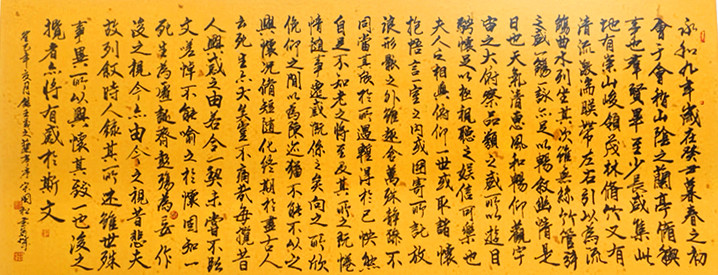 永和九年歲在癸丑暮春之初
會于會稽山陰之蘭亭脩禊
事也群賢畢至少長咸集此
地有崇山峻領茂林脩竹又有
清流激湍暎帶左右引以為流
觴曲水列坐其次雖無絲竹管弦
之盛一觴一詠亦足以暢敘幽情是
日也天氣清惠風和暢仰觀宇
宙之大俯察品類之盛所以遊目
騁懷足以極視聽之娛信可樂也
夫人之相與俯仰一世或取諸懷
抱悟言一室之內或因寄所託放
浪形骸之外雖趣舍萬殊靜躁不
同當其欣於所遇輒得於己怏然
自足不知老之將至及其所之既惓
情隨事遷感慨係之矣向之所欣
俛仰之間以為陳迹猶不能不以之
興懷況脩短隨化終期於盡古人
云死生亦大矣豈不痛哉每攬昔
人興感之由若合一契未嘗不臨
文嗟悼不能喻之於懷固知一
死生為虛誕齊彭殤為妄作
後之視今亦由今之視昔悲夫
故列敘時人錄其所述雖世殊
事異所以興懷其致一也後之
攬者亦將有感於斯文
癸巳年亥月錄王羲之蘭亭序